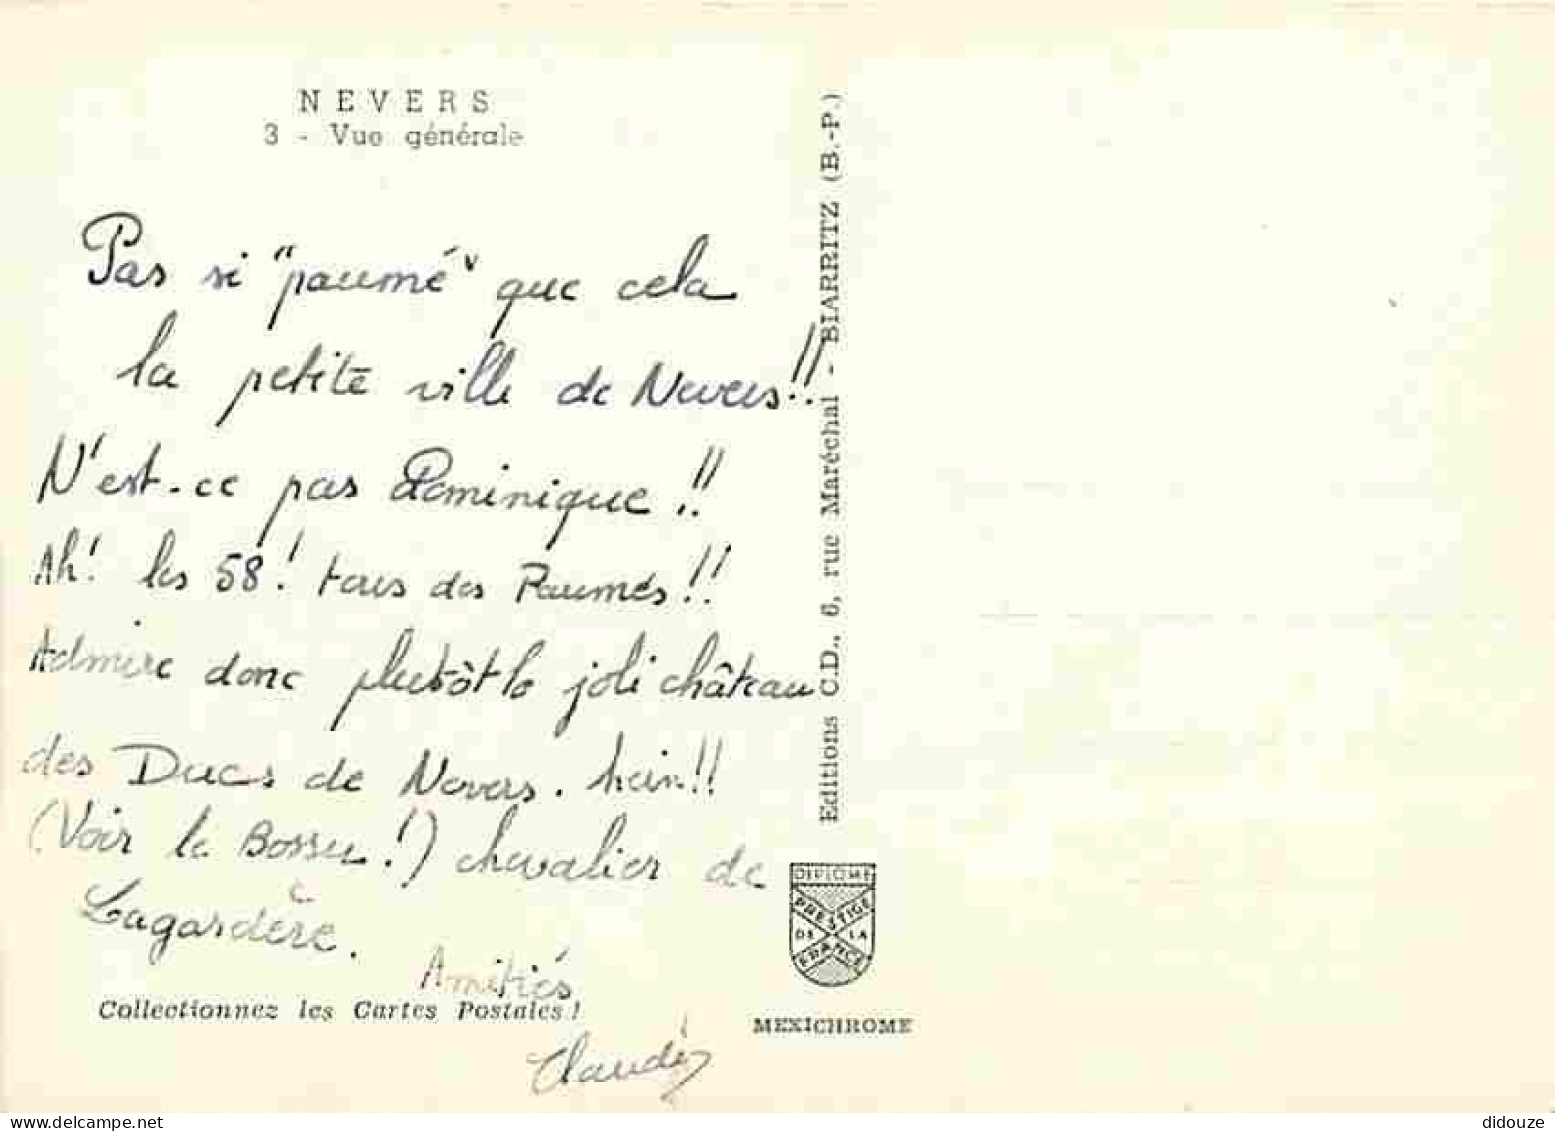 NEVERS
3 - Vue générale
Pas si "paumé" que cela
la petite ville de Nevers!!
N'est-ce pas Dominique!!
Ah! les 58! tous des Paumés!!
Admire donc plutôt le joli château
des Ducs de Nevers. hein!!
(Voir le Bossu!) chevalier de
Lagardère.
Amitiés
Collectionnez les Cartes Postales!
Claude
Editions C.D., 6, rue Maréchal - BIARRITZ (B.-P.)
DIPLOME
PRESTIGE
DE LA
FRANCE
MEXICHROME
delcampe.net
didouze